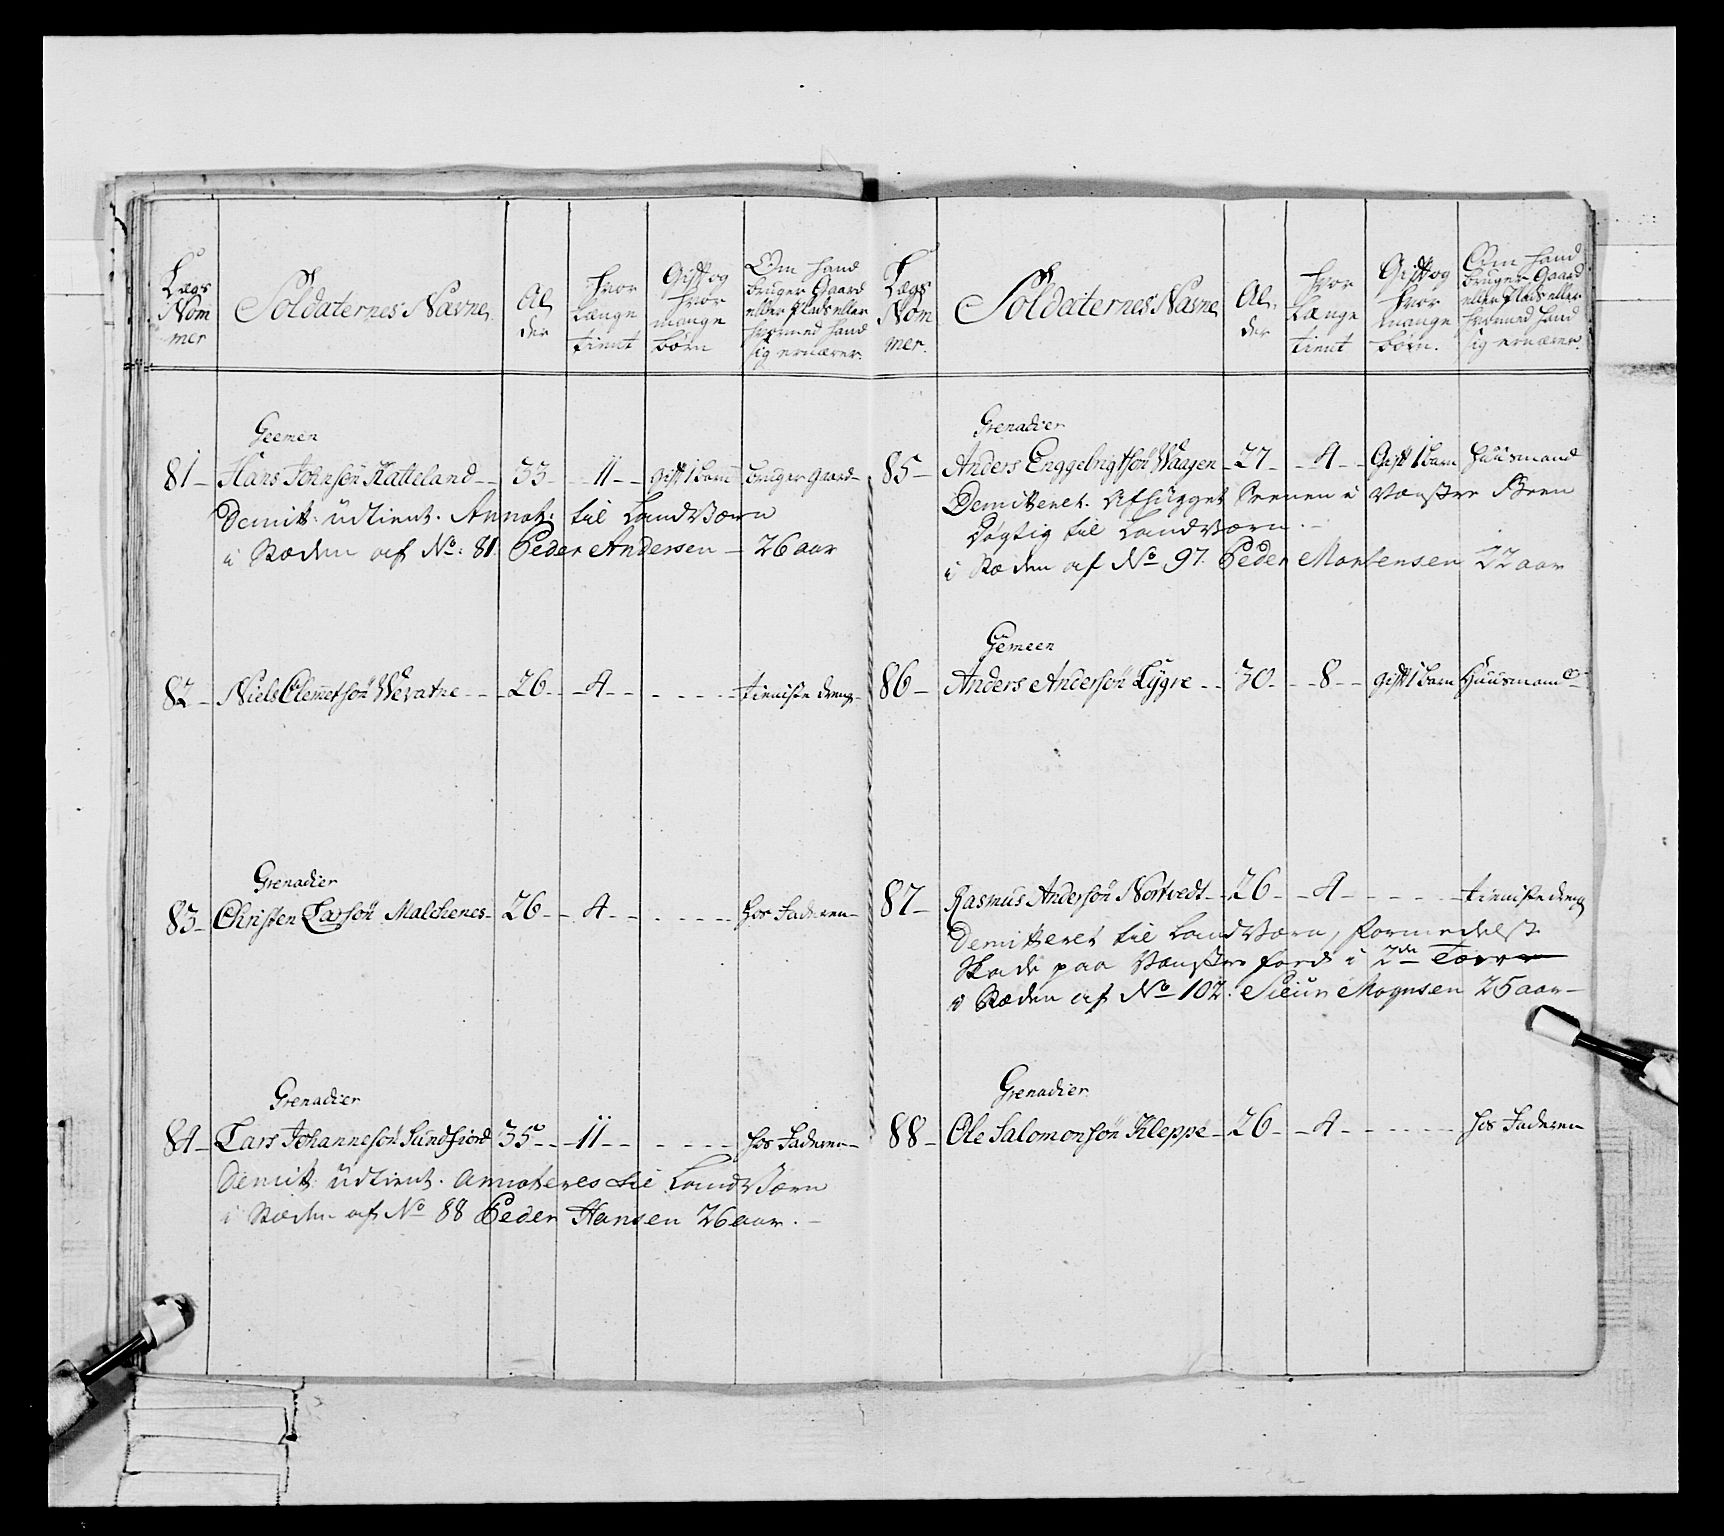 Lægs Nom mer
Soldaternes Navne
Al der
Hvor længe tient
Gift og hvor mange børn
Om hand bruger Gaard eller Plads eller hvormed hand sig ernærer.
Geemen
81 - Hans Johnsön Katteland - - 33 - - 11 - - gift 1 barn bruger gaard -
Demitt: udtient. Annot: til LandVærn
i Stæden af No: 81. Peder Andersen - 26 aar
82 - Niels Clemetsön Wevatne - - - 26 - - 4 - - - - - - tieniste dreng -
Grenadier
83 - Christen Larsön Malchenes - 26 - - 4 - - - - - - hos Faderen -
Grenadier
84 - Lars Johannesön Sundfiord 35 - - 11 - - - - - - hos Faderen -
Demitt: udtient. Annoteres til LandVærn
i Stæden af No 88 Peder Hansen 26 aar. -
Lægs Nom mer.
Soldaternes Navne
Al, der
Hvor længe tient
Gift og hvor mange børn.
Om hand bruger Gaard eller Plads eller hvormed hand sig ernærer.
Grenadier
85 - Anders Enggelbrigtsön Waagen - 27 - - 4 - - Gift 1 barn Huusmand
Demitteret. Afhugget Seenen i Vænster Been
Døgtig til LandVærn. -
i Stæden af No 97. Peder Mortensen 22 aar
Gemeen
86 - Anders Andersön Lygre - - 30 - - 8 - - gift 1 barn Huusmand -
87 - Rasmus Andersön Nortvedt - - 26 - - 4 - - - - - - tieniste dreng
Demitteret til LandVærn, formedelst
Skade paa Vænstre i 2de
i Stæden af No 102. Siur Mognsen 25 aar -
Grenadier
88 - Ole Salomonsön Kleppe - 26 - - 4 - - - - - - hos Faderen